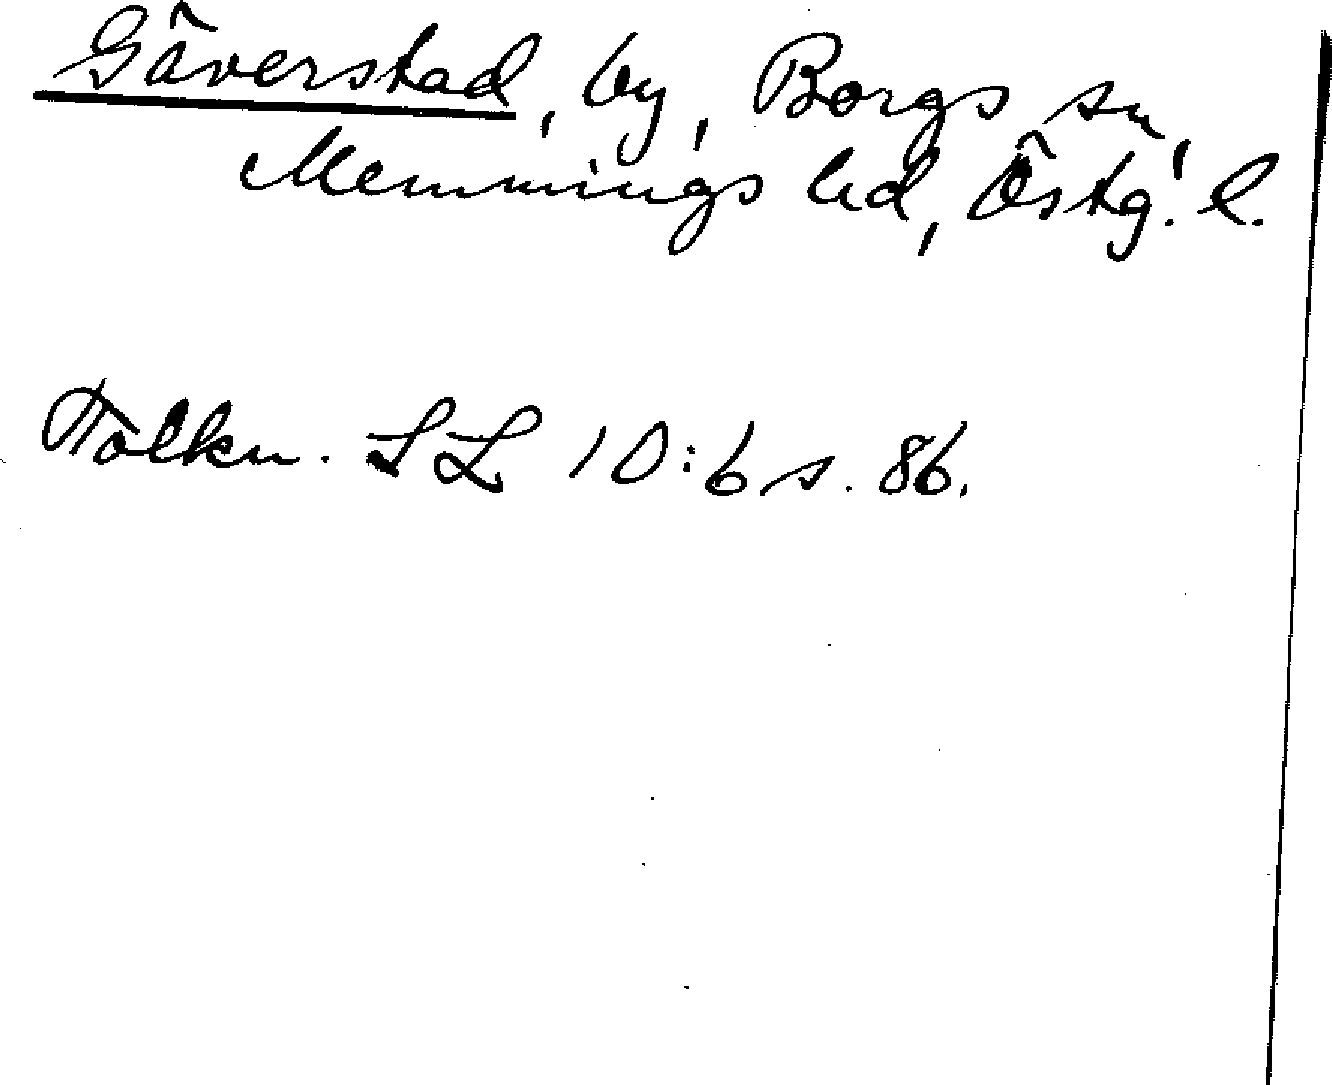 Gäverstad, by, Borgs sn,
Memmings hd, Östg. l.
Tolkn. SL 10:6 s. 86.